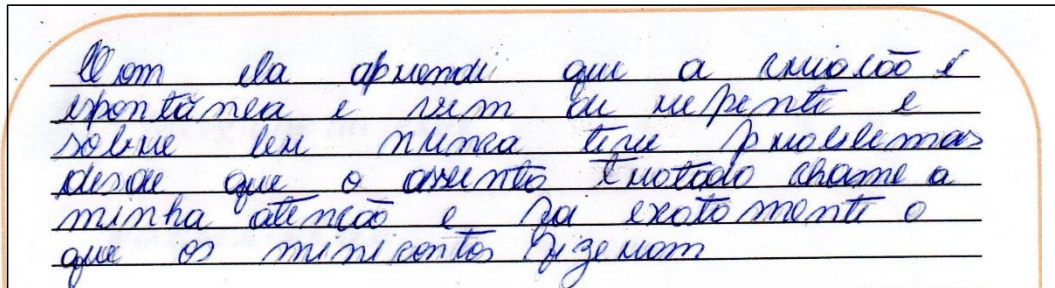 Com ela aprendi que a emioção é
espontânea e vem de repente e
sobre ler nunca tive problemas
desde que o assunto tratado chame a
minha atenção e foi exatamente o
que os minicontos fizeram